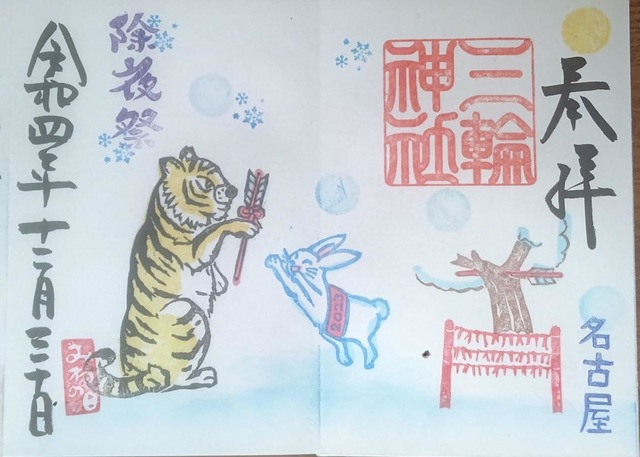 奉拝
名古屋
三輪
神社
2023
除夜祭
令和四年十二月三十日